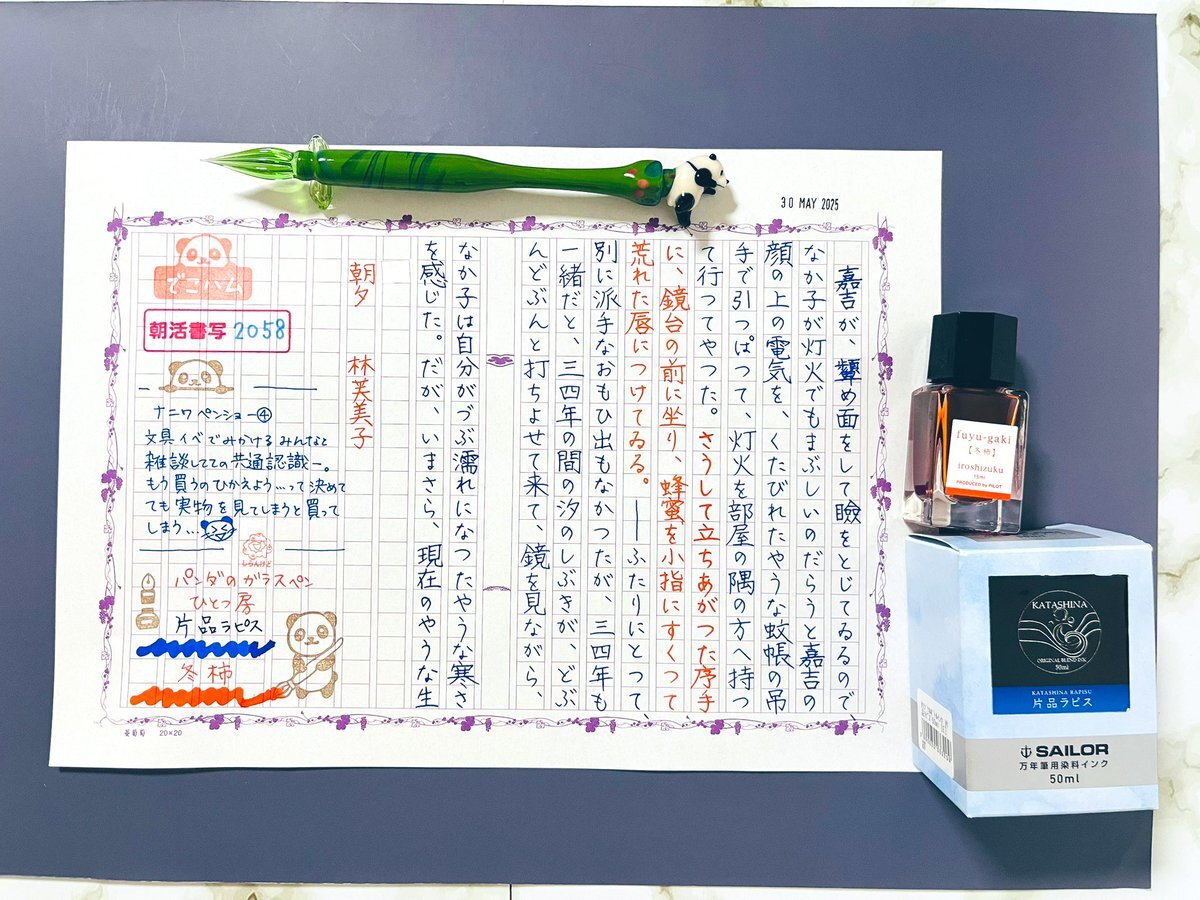 30 MAY 2025
嘉吉が、顰め面をして瞼をとじてゐるので、
なか子が灯火でもまぶしいのだらうと嘉吉の
顔の上の電気を、くたびれたやうな蚊帳の吊
手で引つぱつて、灯火を部屋の隅の方へ持つ
て行つてやつた。さうして立ちあがつた序手
に、鏡台の前に坐り、蜂蜜を小指にすくつて
荒れた唇につけてゐる。――ふたりにとつて、
別に派手なおもひ出もなかつたが、三四年も
一緒だと、三四年の間の汐のしぶきが、どぶ
んどぶんと打ちよせて来て、鏡を見ながら、
なか子は自分がづぶ濡れになつたやうな寒さ
を感じた。だが、いまさら、現在のやうな生
朝夕 林芙美子
でこハム
朝活書写 2058
ナニワペンショー④
文具イベでみかける みんなと
雑談しての共通認識ー。
もう買うのひかえよう…って決めて
ても実物を見てしまうと買って
しまう…
しらんけど
パンダのガラスペン
ひとつ房
片品ラピス
冬柿
葡萄蔔 20×20
fuyu-gaki
【冬柿】
iroshizuku
15ml
PRODUCED by PILOT
KATASHINA
ORIGINAL BLEND INK
50ml
KATASHINA RAPISU
片品ラピス
SAILOR
万年筆用染料インク
50ml